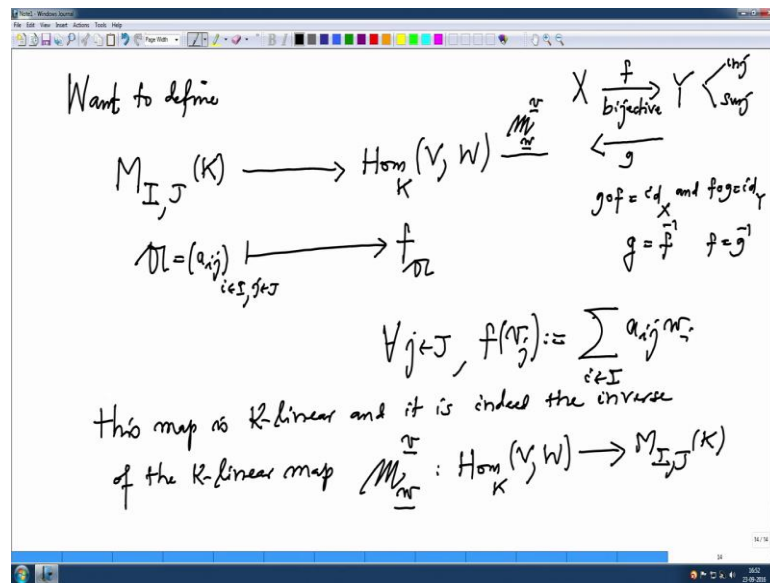 Note1 - Windows Journal
File Edit View Insert Actions Tools Help
Page Width
Want to define
X \xrightarrow[bijective]{f} Y < inj
surj
M_{I,J}(K) ⟶ Hom_K(V, W) 𝓜^v_w
⟵ g
g∘f = id_X and f∘g = id_Y
g = f^{-1} f = g^{-1}
𝔄 = (a_{ij})_{i∈I, j∈J} ⟼ f_𝔄
∀ j∈J, f(v_j) := ∑_{i∈I} a_{ij} w_i
This map is K-linear and it is indeed the inverse
of the K-linear map 𝓜^v_w : Hom_K(V, W) ⟶ M_{I,J}(K)
14 / 14
14
16:52
23-09-2018